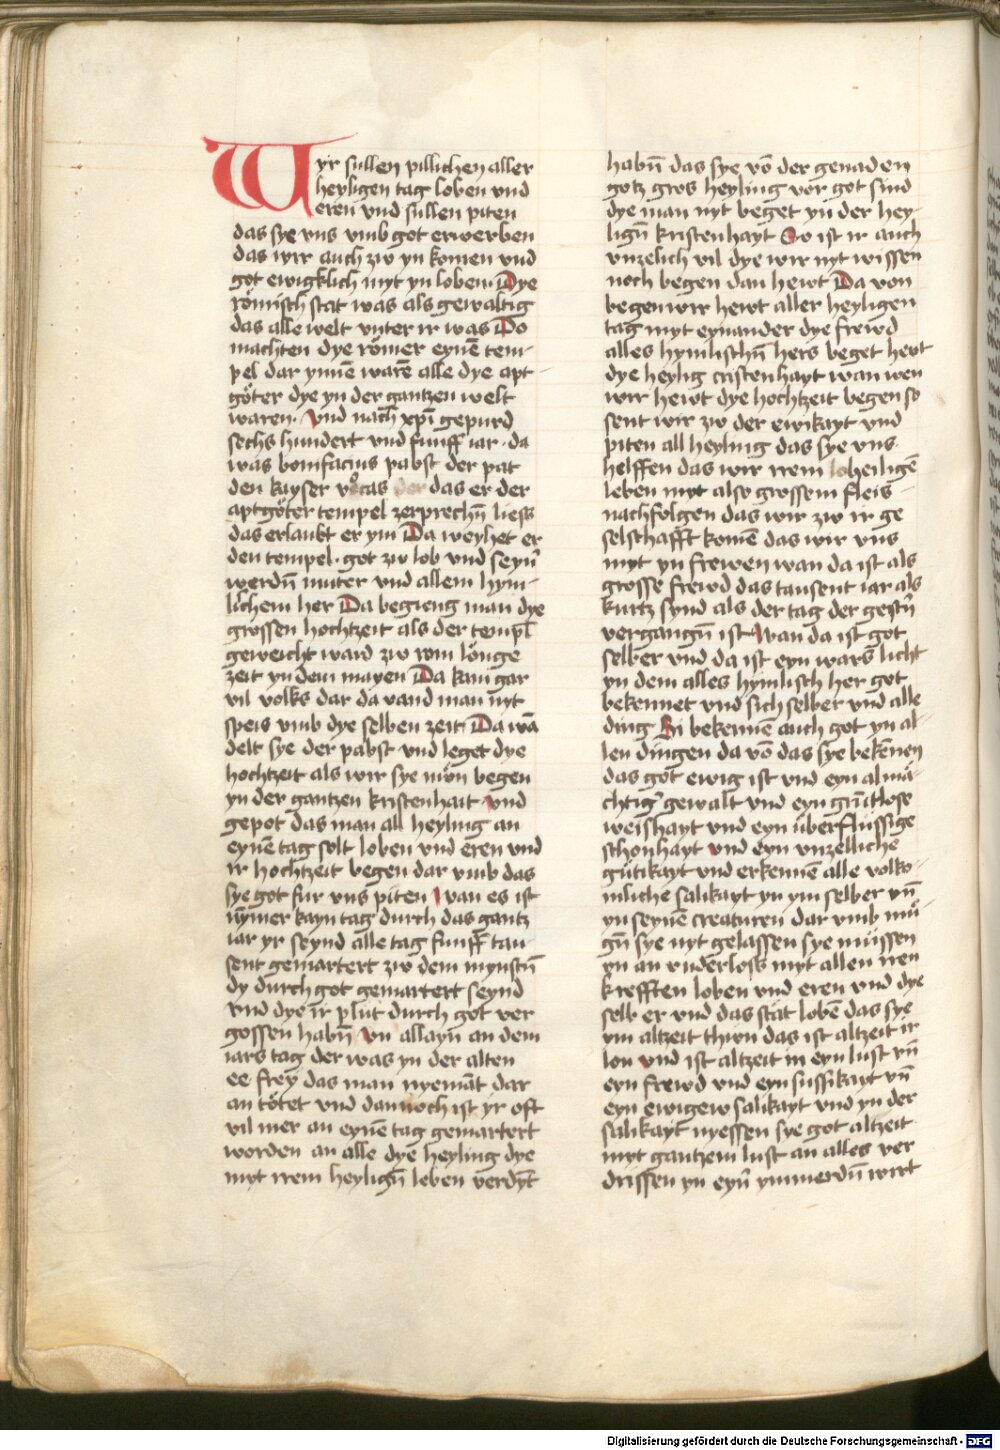 Wyr sullen pillichen aller
heyligen tag loben vnd
eren vnd sullen piten
das sye vns vmb got erwerben
das wir auch zw yn komen vnd
got ewigklich myt yn loben Dye
römisch stat was als gewaltig
das alle welt vnter ir was Do
machten dye römer eynē tem-
pel dar ynnē warē alle dye apt-
göter dye yn der gantzen welt
waren. vnd nach xpī gepurd
sechs hundert vnd funff iar. da
was bonifacius pabst der pat
den kayser focas das er der
aptgöter tempel zerprechñ liess
das erlaubt er ym Da weyhet er
den tempel. got zw lob vnd seyn̄
werdñ muter vnd allem hym-
lischem her Da begieng man dye
grossen hochtzeit als der templ̄
geweicht ward zw rom lönge
zeit yn dem mayen Da kam gar
vil volks dar da vand man nyt
speis vmb dye selben zeit Da wā
delt sye der pabst vnd leget dye
hochtzeit als wir sye nwn begen
yn der gantzen kristenhait vnd
gepot das man all heyling an
eynē tag solt loben vnd eren vnd
ir hochtzeit begen dar vmb das
sye got fur vns piten wan es ist
nymer kayn tag durch das gantz
iar yr seynd alle tag funff tau-
sent gemartert zw dem mynstñ
dy durch got gemartert seynd
vnd dye ir plut durch got ver
gossen habñ vn allayn an dem
iars tag der was yn der alten
ee frey das man nyemāt dar
an tötet vnd dannoch ist yr oft
vil mer an eynē tag gemartert
worden an alle dye heyling dye
myt irem heyligñ leben verdȳt
habñ das sye vō der genaden
gotz gros heyling vor got sind
dye man nyt beget yn der hey-
ligñ kristenhayt So ist ir auch
vnzelich vil dye wir nyt wissen
noch begen dan hewt Da von
begen wir hewt aller heyligen
tag myt eynander dye frewd
alles hymlischñ hers beget hewt
dye heylig cristenhayt wan wen
wir hewt dye hochtzeit begen so
sent wir zw der ewikayt vnd
piten all heyling das sye vns
helffen das wir irem heiligē
leben myt also grossem fleis
nachfolgen das wir zw ir ge
selschafft komē das wir vns
myt yn frewen wan da ist als
grosse frewd das tausent iar als
kurtz synd als der tag der gestñ
vergangñ ist Wan da ist got
selber vnd da ist eyn wars licht
yn dem alles hymlisch her got
bekennet vnd sich selber vnd alle
ding Si bekennē auch got yn al-
len dingen da vō das sye bekēnen
das got ewig ist vnd eyn almä-
chtig' gewalt vnd eyn grūtlose
weishayt vnd eyn überflüssige
schonhayt vnd eyn vnzelliche
gütikayt vnd erkennē alle volko-
mliche salikayt yn ym selber vñ
yn seynē creaturen dar vmb mü-
gñ sye nyt gelassen sye müssen
yn an vnderloss myt allen iren
krefften loben vnd eren vnd dye
selb er vnd das stät lobē das sye
ym altzeit thun das ist altzeit ir
lon vnd ist altzeit in eyn lust vñ
eyn frewd vnd eyn sussikayt vñ
eyn ewigew salikayt vnd yn der
salikayt nyessen sye got altzeit
myt gantzem lust an alles ver
drissen yn eyn̄ ymmerdñ wirt
Digitalisierung gefördert durch die Deutsche Forschungsgemeinschaft - DFG